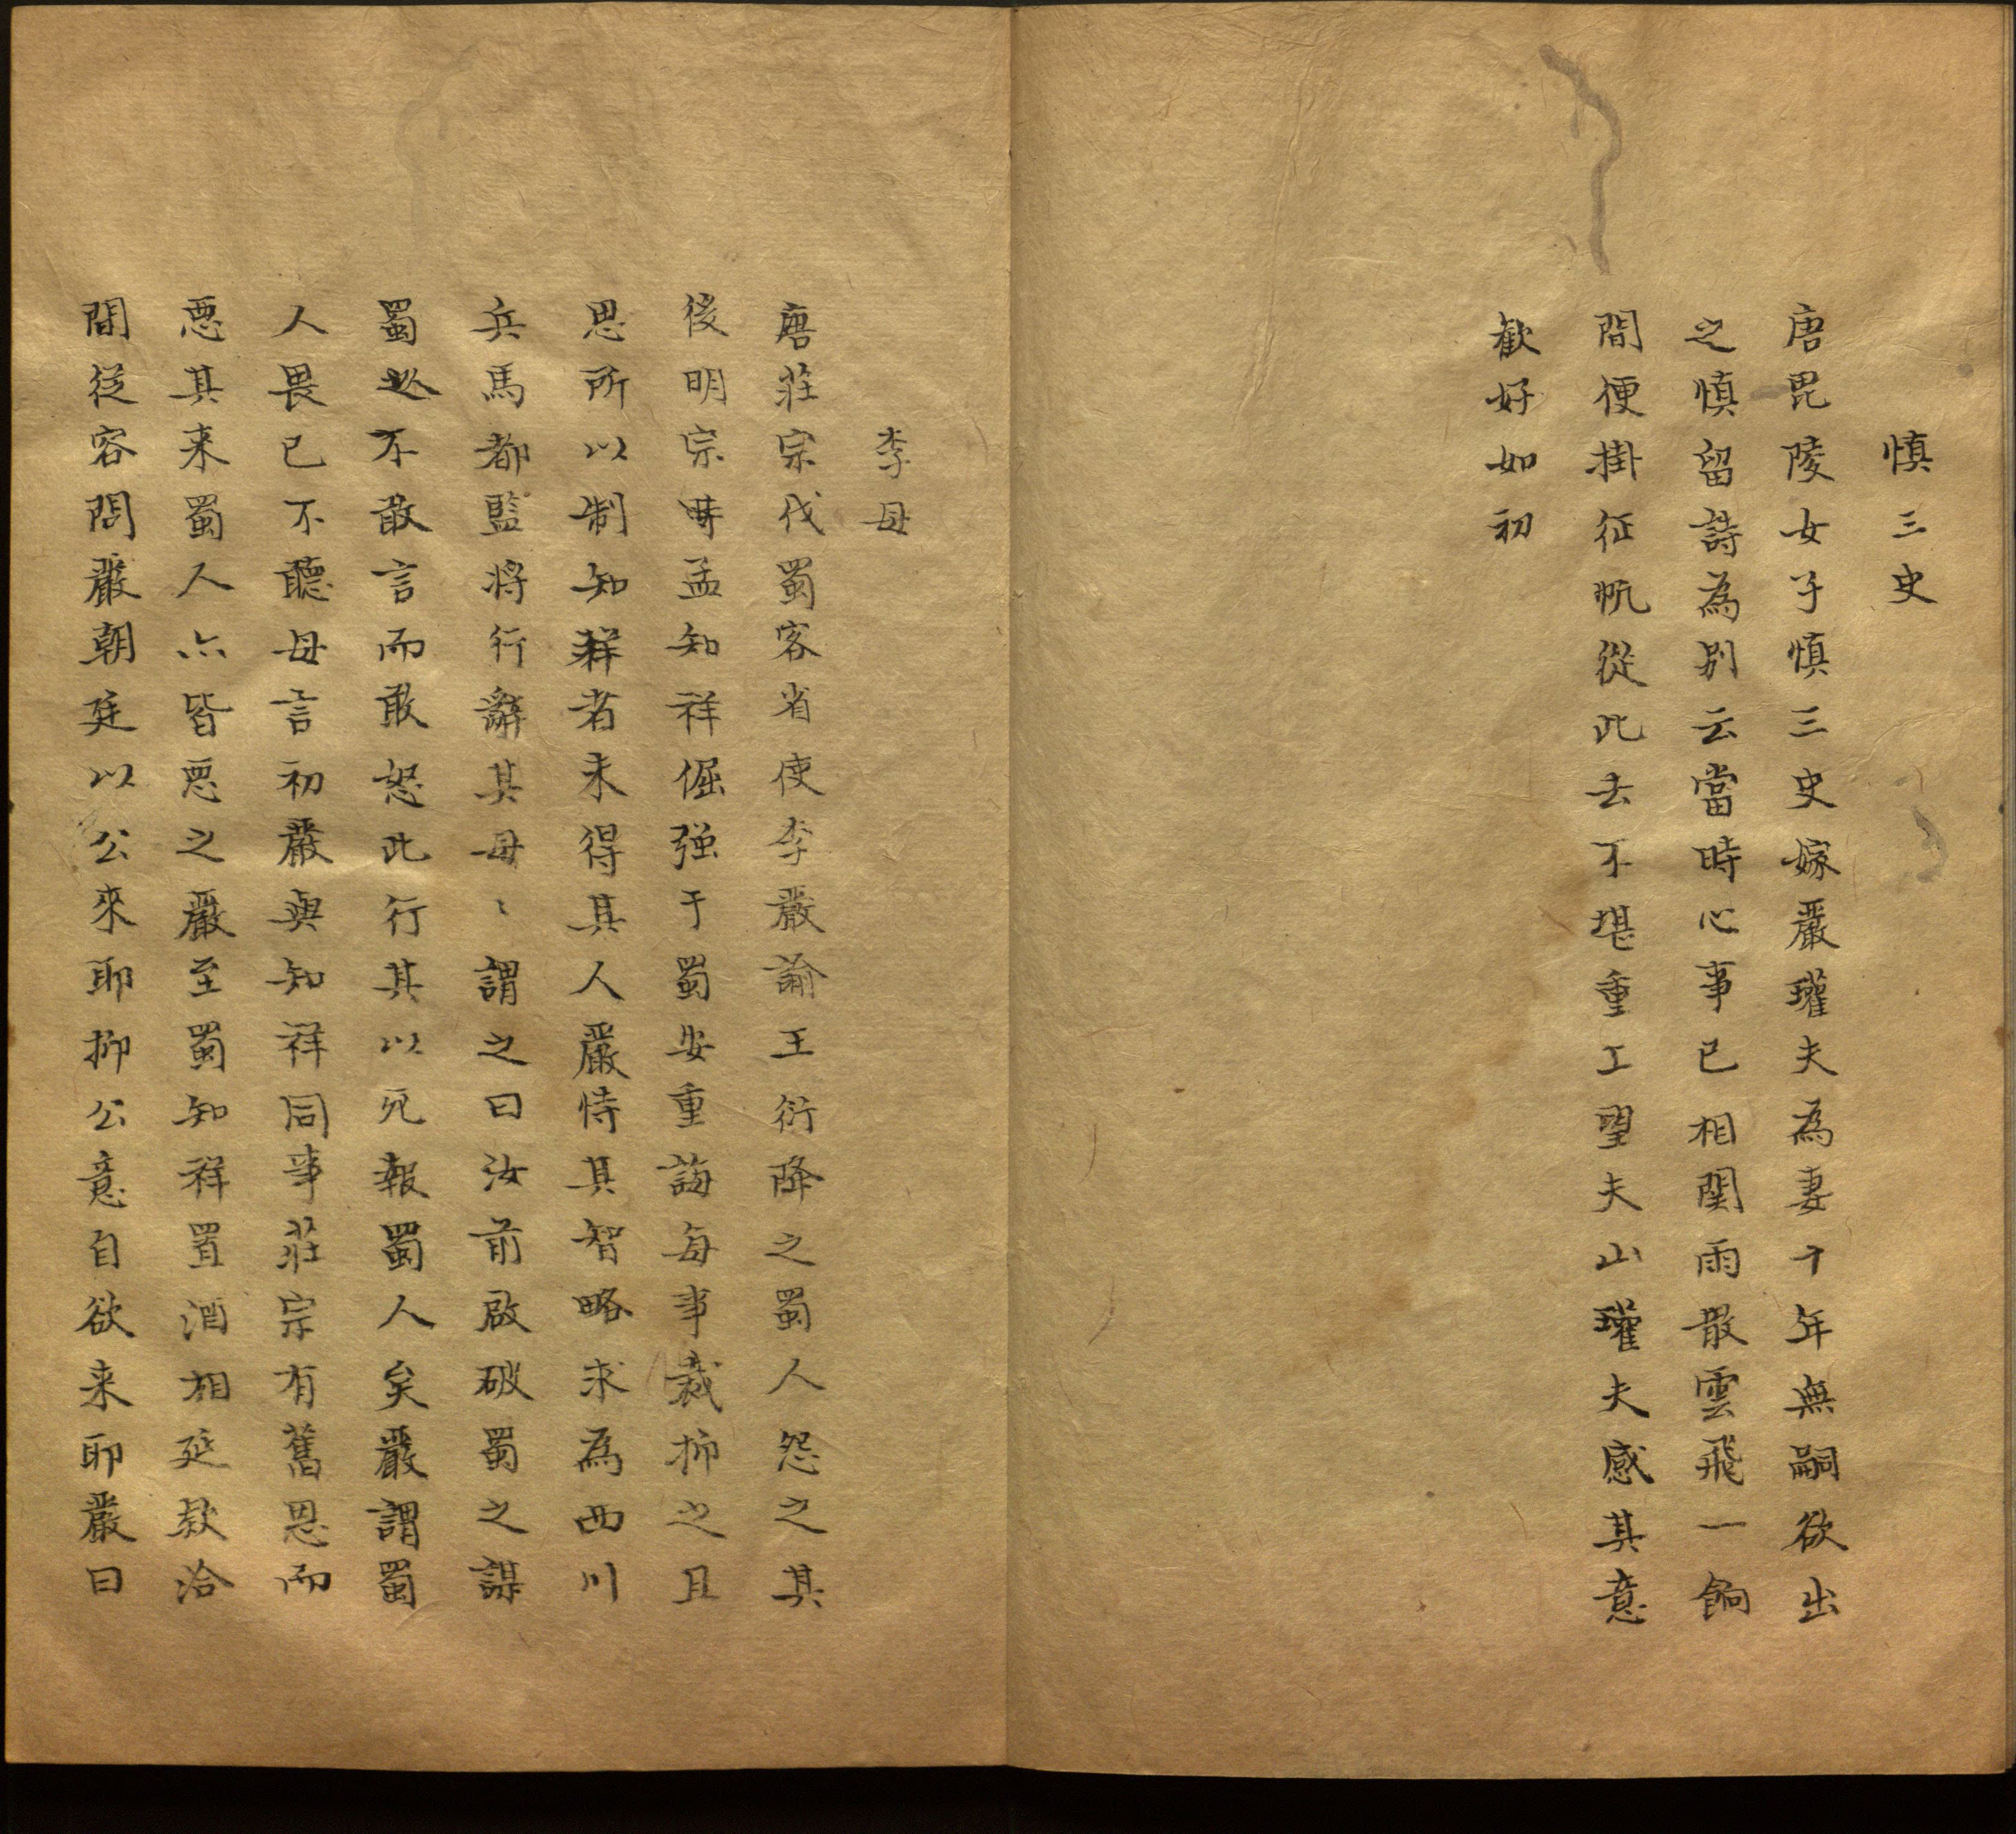 慎三史
唐毘陵女子慎三史嫁嚴瓘夫為妻十年無嗣欲出
之慎留詩為別云當時心事已相関雨散雲飛一餉
間便掛征帆從此去不堪重工望夫山瓘夫感其意
歡好如初
李母
唐莊宗伐蜀客省使李嚴諭王衍降之蜀人怨之其
後明宗時孟知祥倔强于蜀安重誨每事裁抑之且
思所以制知祥者未得其人嚴恃其智略求為西川
兵馬都監將行辭其母〻謂之曰汝前啟破蜀之謀
蜀必不敢言而敢怒此行其以死報蜀人矣嚴謂蜀
人畏已不聽母言初嚴與知祥同事莊宗有舊恩而
惡其来蜀人亦皆惡之嚴至蜀知祥置酒相延欵洽
間從容問嚴朝廷以公來耶抑公意自欲来耶嚴曰